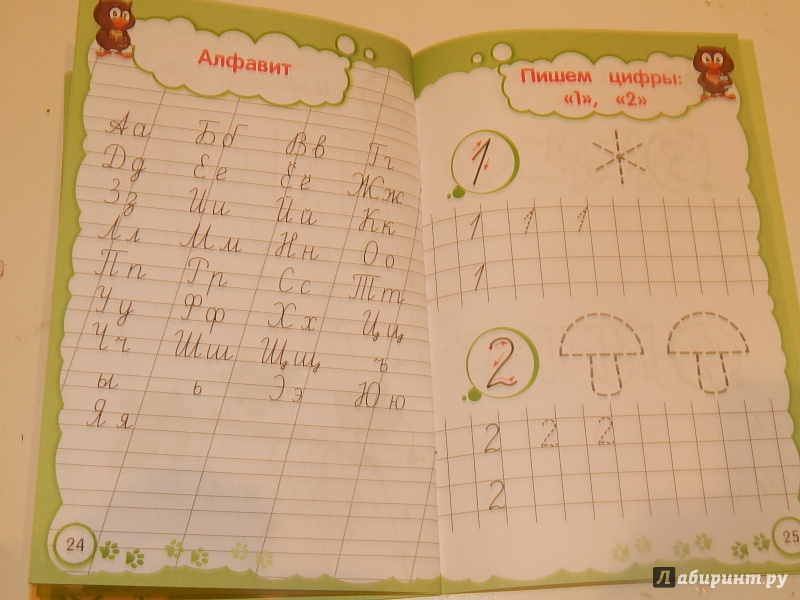 Алфавит
Аа Бб Вв Гг
Дд Ее Ёё Жж
Зз Ии Йй Кк
Лл Мм Нн Оо
Пп Рр Сс Тт
Уу Фф Хх Цц
Чч Шш Щщ ъ
ы ь Ээ Юю
Яя
24
Пишем цифры:
«1», «2»
1
1 1 1
1
2
2 2 2
2
25
Лабиринт.ру